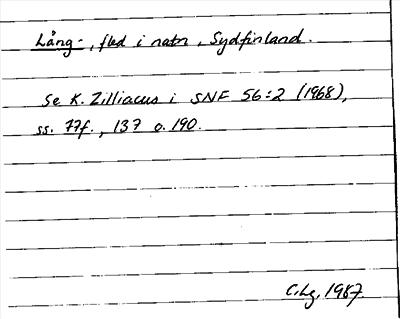 Lång-, fled i natn, Sydfinland.
Se K. Zilliacus i SNF 56:2 (1968),
ss. 77f., 137 o. 190.
C.Lg. 1987.